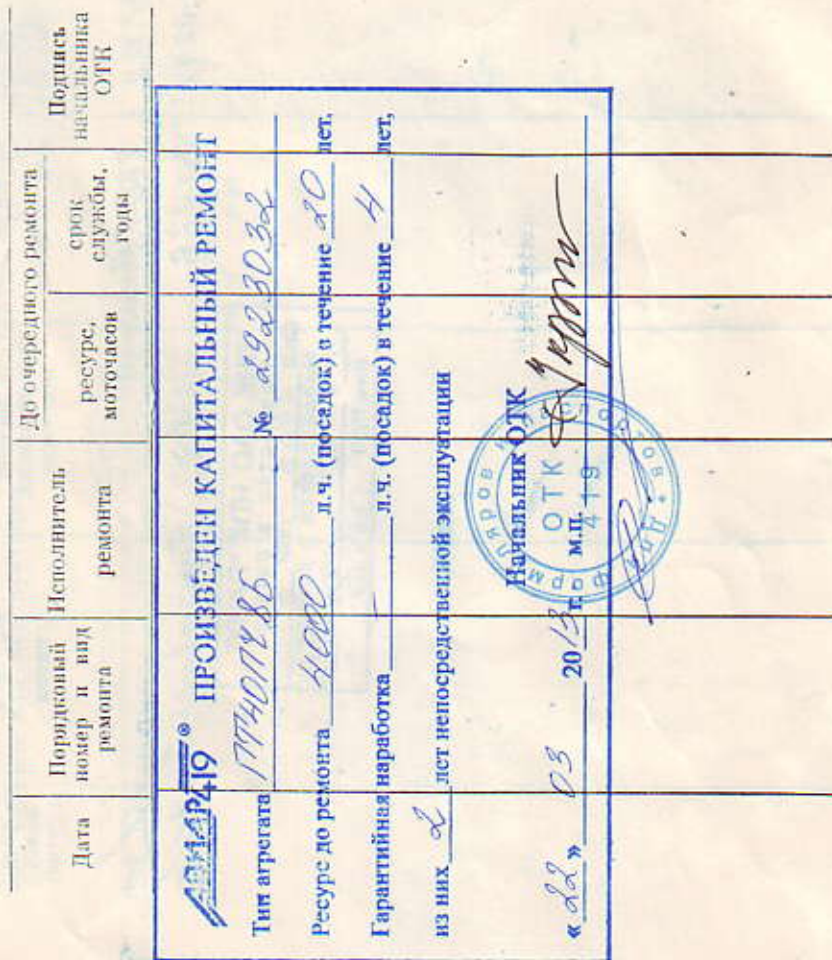 Дата
Порядковый номер и вид ремонта
Исполнитель ремонта
До очередного ремонта
ресурс, моточасов
срок службы, годы
Подпись начальника ОТК
АВИАР419® ПРОИЗВЕДЕН КАПИТАЛЬНЫЙ РЕМОНТ
Тип агрегата № 2923032
Ресурс до ремонта 4000 л.ч. (посадок) в течение 20 лет,
Гарантийная наработка – л.ч. (посадок) в течение 4 лет,
из них 2 лет непосредственной эксплуатации
Начальник ОТК
« 22 » 03 2013 г. М.П.
Для формуляров и паспортов *
ОТК
419